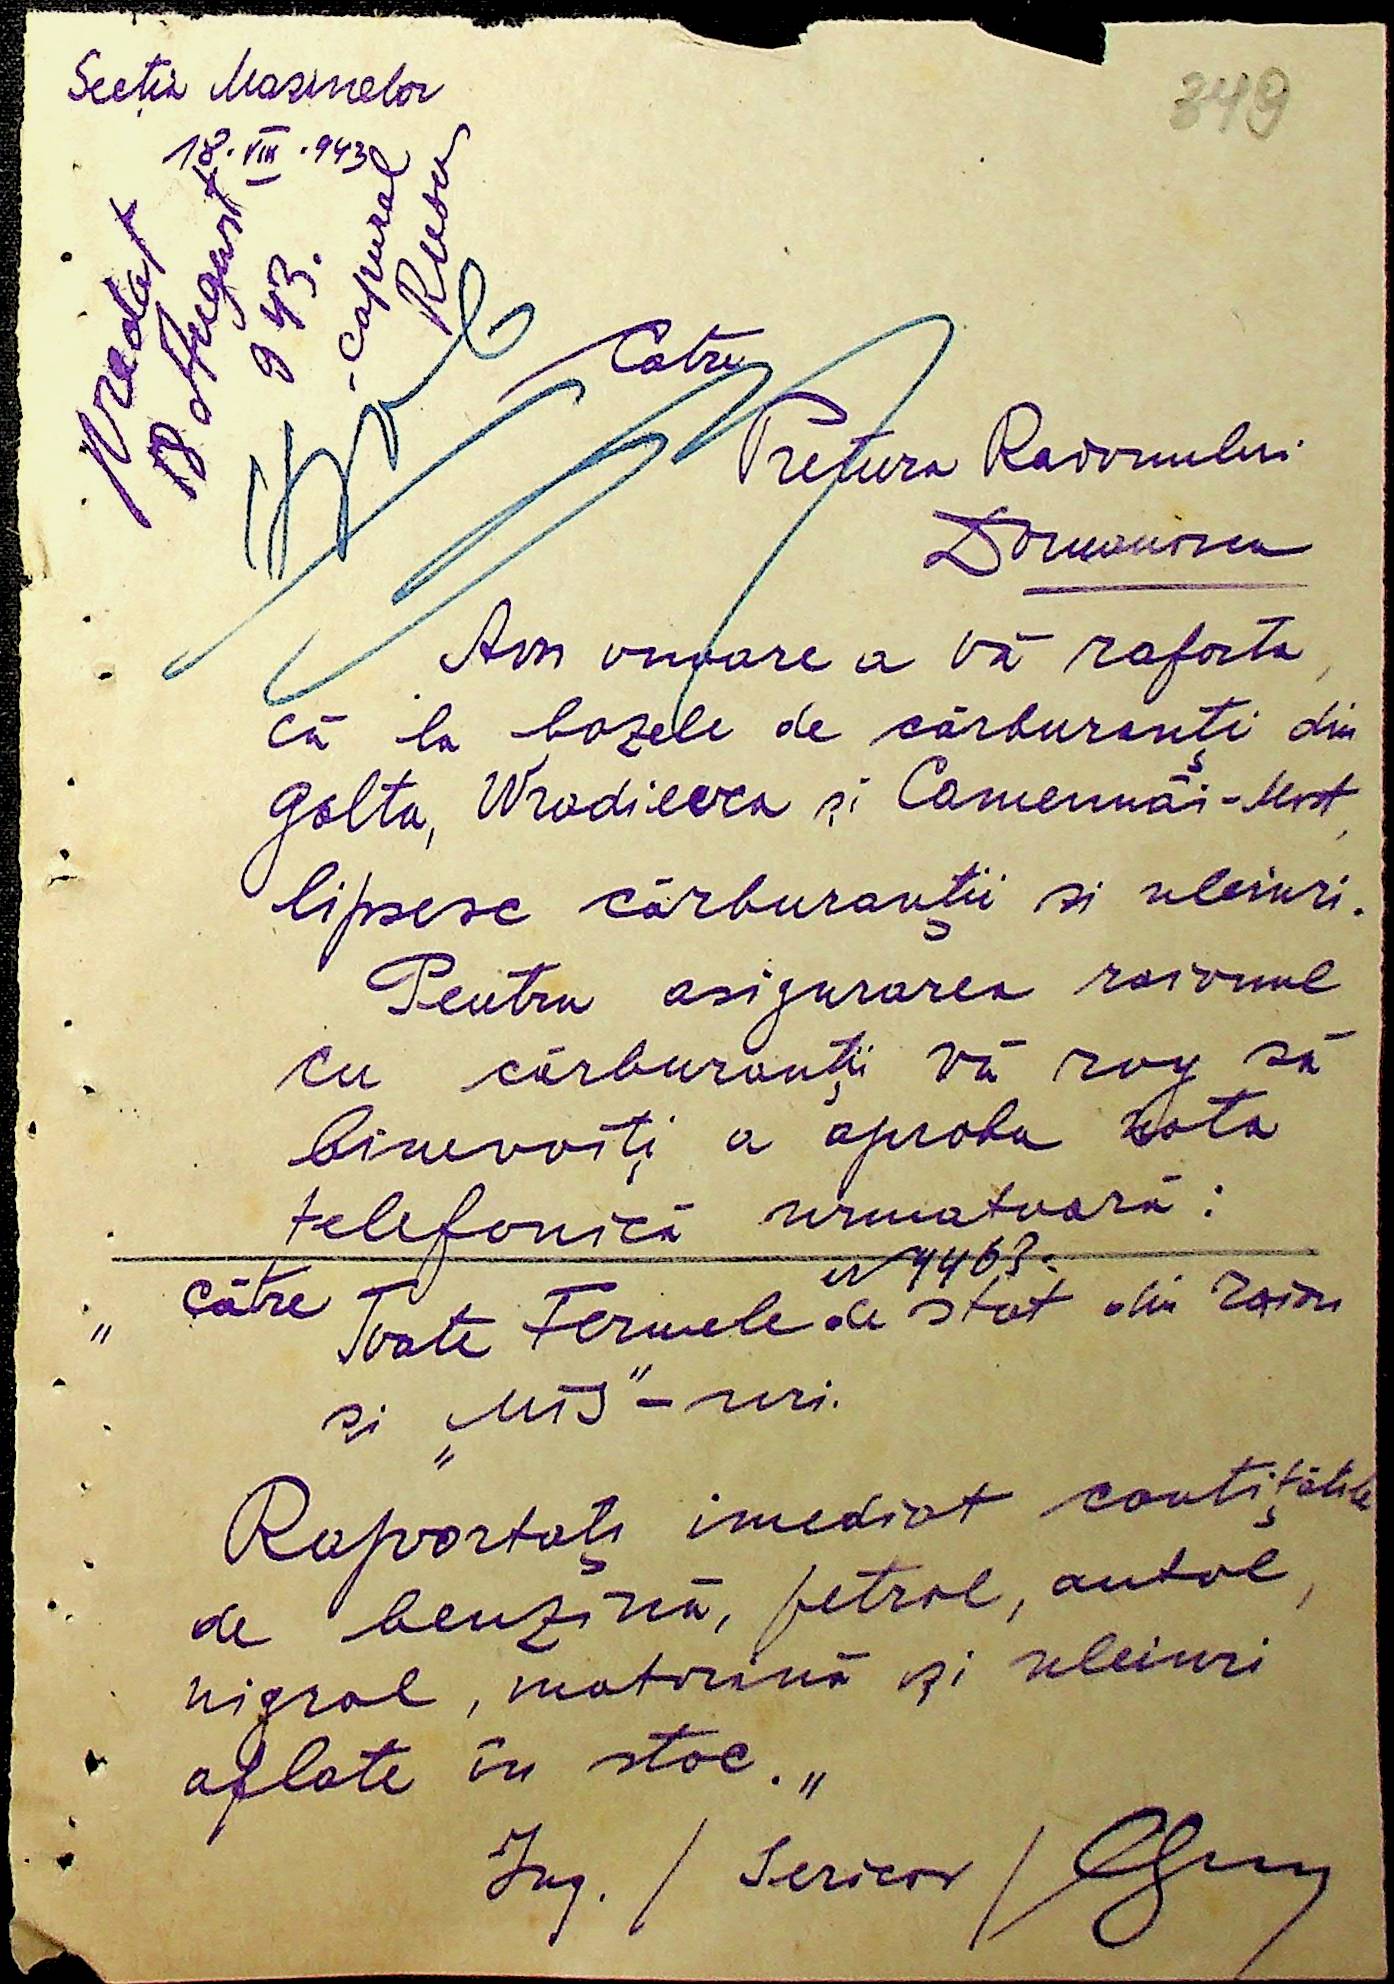 Secția Masinelor
349
18.VIII.943
Predat
18 August
943.
caporal
Rusu
Catre
Pretura Raionului
Domanovca
Am onoare a vă raporta,
că la bazele de cărburanți din
Golta, Wradievca și Camennâi-Most,
lipsesc cărburanții si uleiuri.
Pentru asigurarea raionul
cu cărburanții vă rog să
binevoiți a aproba nota
telefonică urmatoară:
nr 4463.
„ către Toate Fermele de stat din raion
și „MTS"-uri.
Raportați imediat cantițătile
de benzină, petrol, autol,
nigrol, motorină și uleiuri
aflate în stoc.„
Ing. / Sericov /